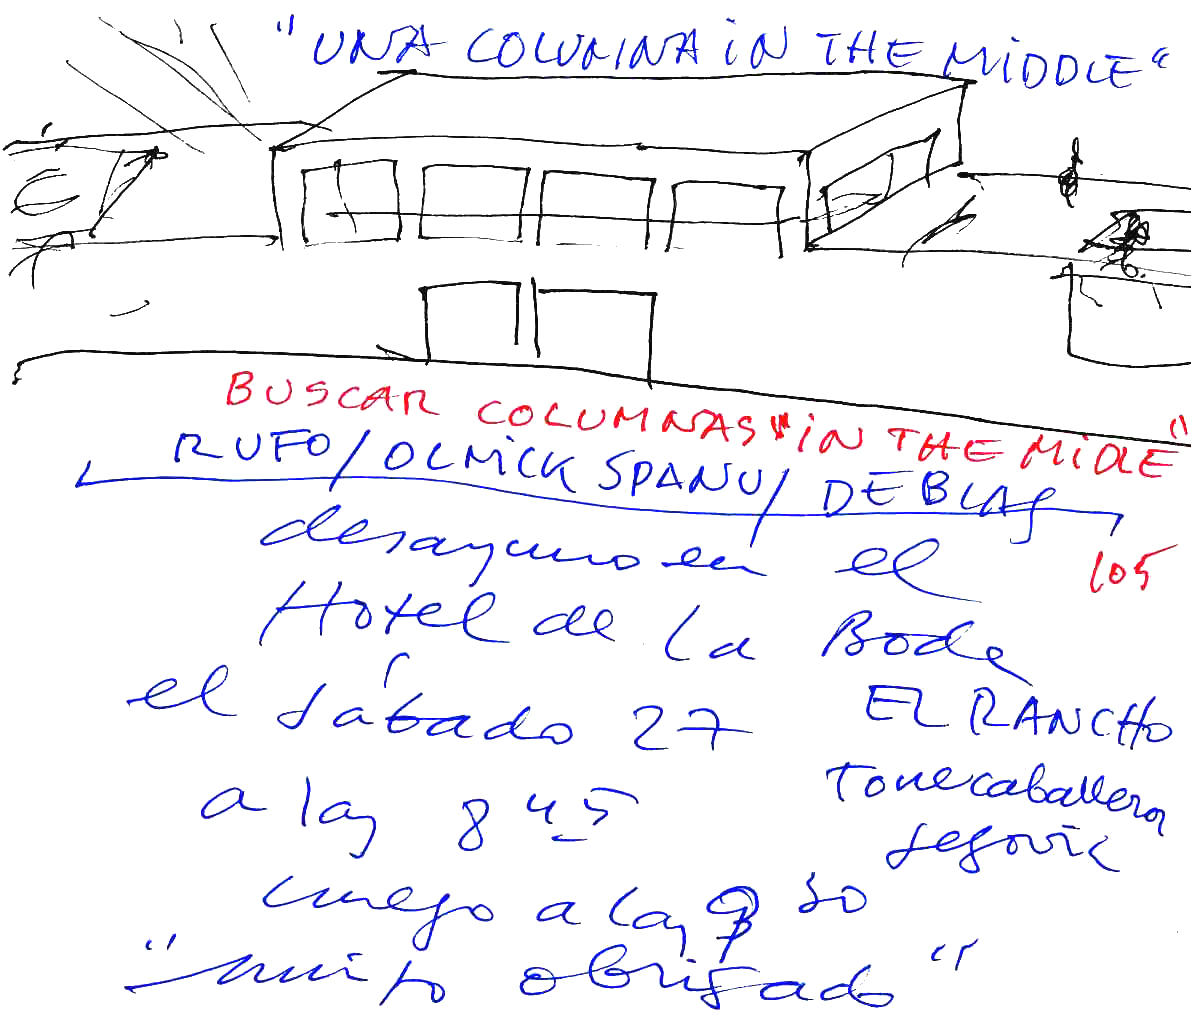 "UNA COLUMNA iN THE MiDDLE"
BUSCAR COLUMNAS "iN THE MiDLE"
RUFO/OLNiCK SPANU/ DE BLAS
105
desayuno en el
Hotel de La Boda
el sábado 27
EL RANCHO
a las 8 45
Torrecaballeros
segovia
luego a las 9 30
"muito obrigado"